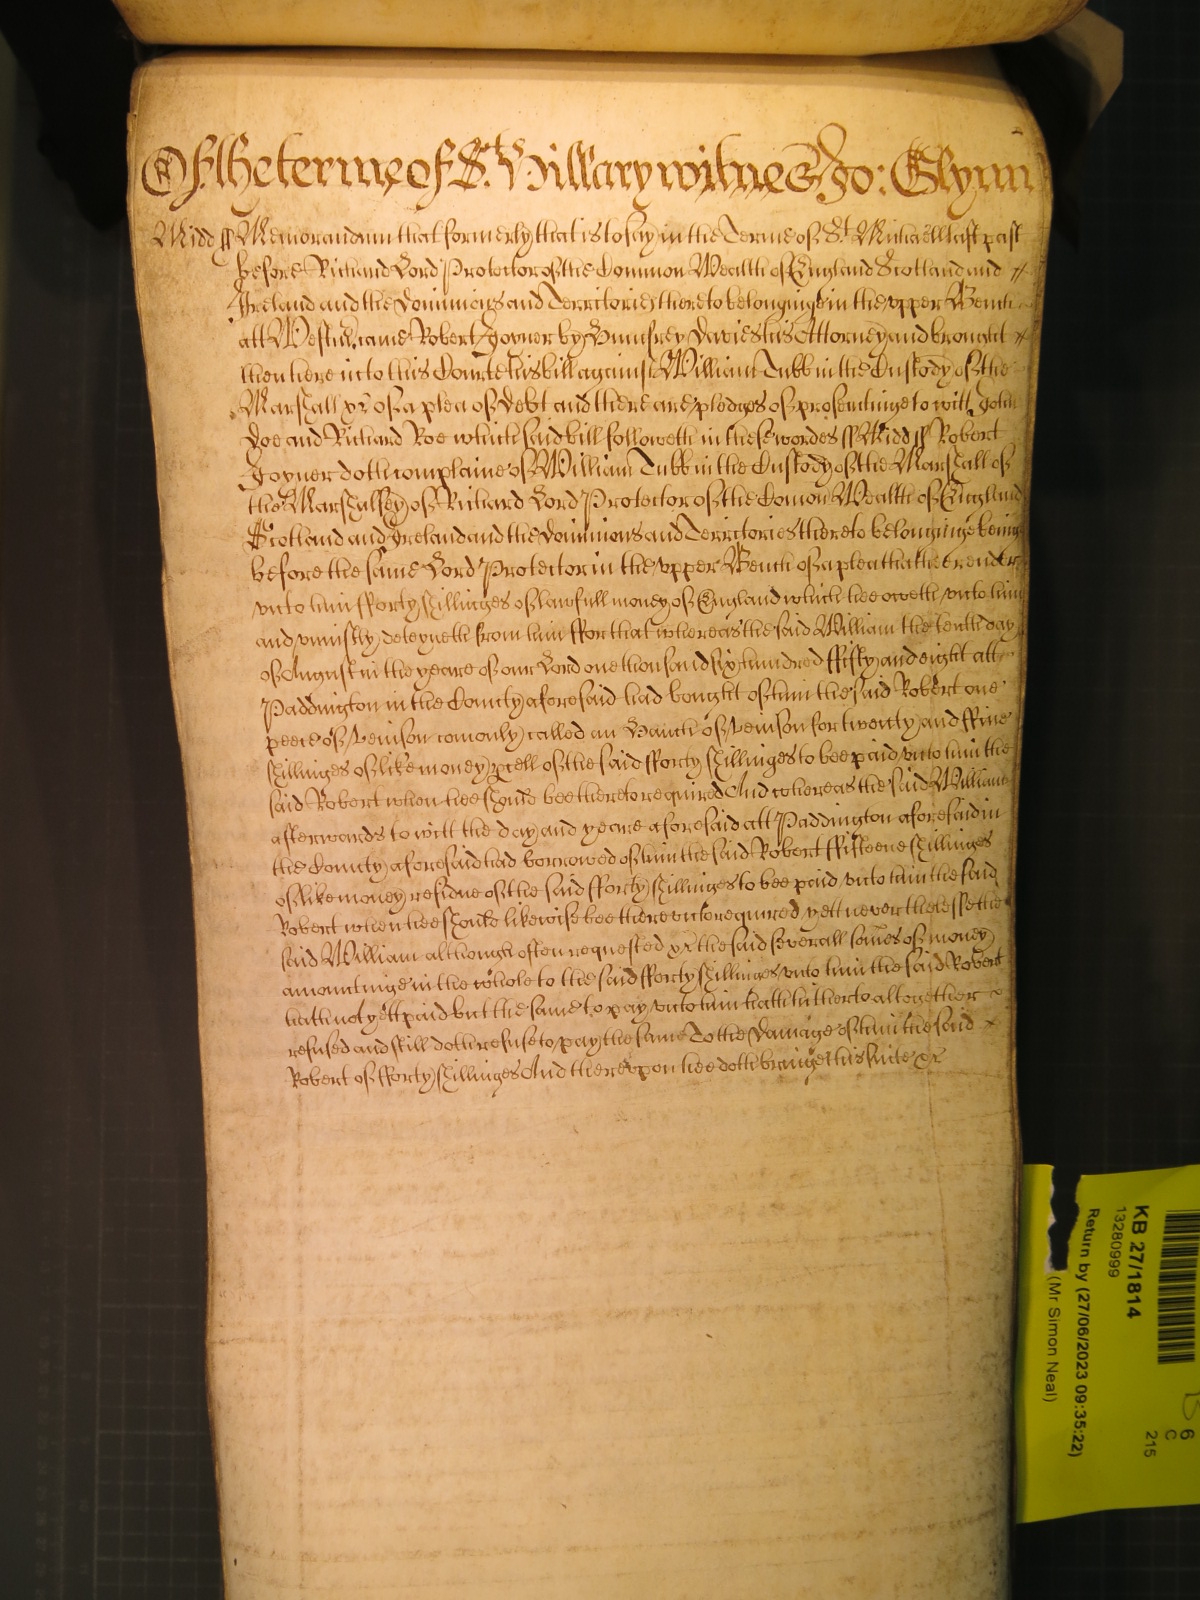 Of the terme of St. Hillary witnes Jo: Glynn
Midd ss Memorandum that formerly that is to say in the Terme of St. Michaell last past
before Richard Lord Protector of the Common Wealth of England Scotland and
Ireland and the Dominions and Territories thereto belonginge in the upper Bench
att Westm. came Robert Joyner by Humfrey Davies his Attorney and brought
then here into this Courte his bill against William Tubb in the Custody of the
Marshall &c of a plea of Debt and there are pledges of prosecutinge to witt John
Doe and Richard Roe which said bill followeth in these wordes ss Midd ss Robert
Joyner doth complaine of William Tubb in the Custody of the Marshall of
the Marshalsey of Richard Lord Protector of the Comon Wealth of England
Scotland and Ireland and the Dominions and Territories thereto belonginge being
before the same Lord Protector in the upper Bench of a plea that hee render
unto him fforty shillinges of lawfull money of England which hee oweth unto him
and uniustly deteyneth from him ffor that whereas the said William the tenth day
of August in the yeare of our Lord one thousand six hundred ffifty and eight att
Paddington in the County aforesaid had bought of him the said Robert one
peece of venison comonly called an Hanch of venison for twenty and ffive
shillinges of like money pcell of the said fforty shillinges to bee paid unto him the
said Robert when hee should bee thereto required And whereas the said William
afterwards to witt the day and yeare aforesaid att Paddington aforesaid in
the County aforesaid had borrowed of him the said Robert ffifteene shillinges
of like money residue of the said fforty shillinges to bee paid unto him the said
Robert when hee should likewise bee thereunto required yett neverthelesse the
said William although often requested &c the said severall somes of money
amountinge in the whole to the said fforty shillinges unto him the said Robert
hath not yett paid but the same to pay unto him hath hitherto altogether
refused and still doth refuse to pay the same To the Damage of him the said
Robert of fforty shillinges And thereupon hee doth bringe this suite &c
KB 27/1814
13280999
Return by (27/06/2023 09:35:22)
(Mr Simon Neal)
6
C
215